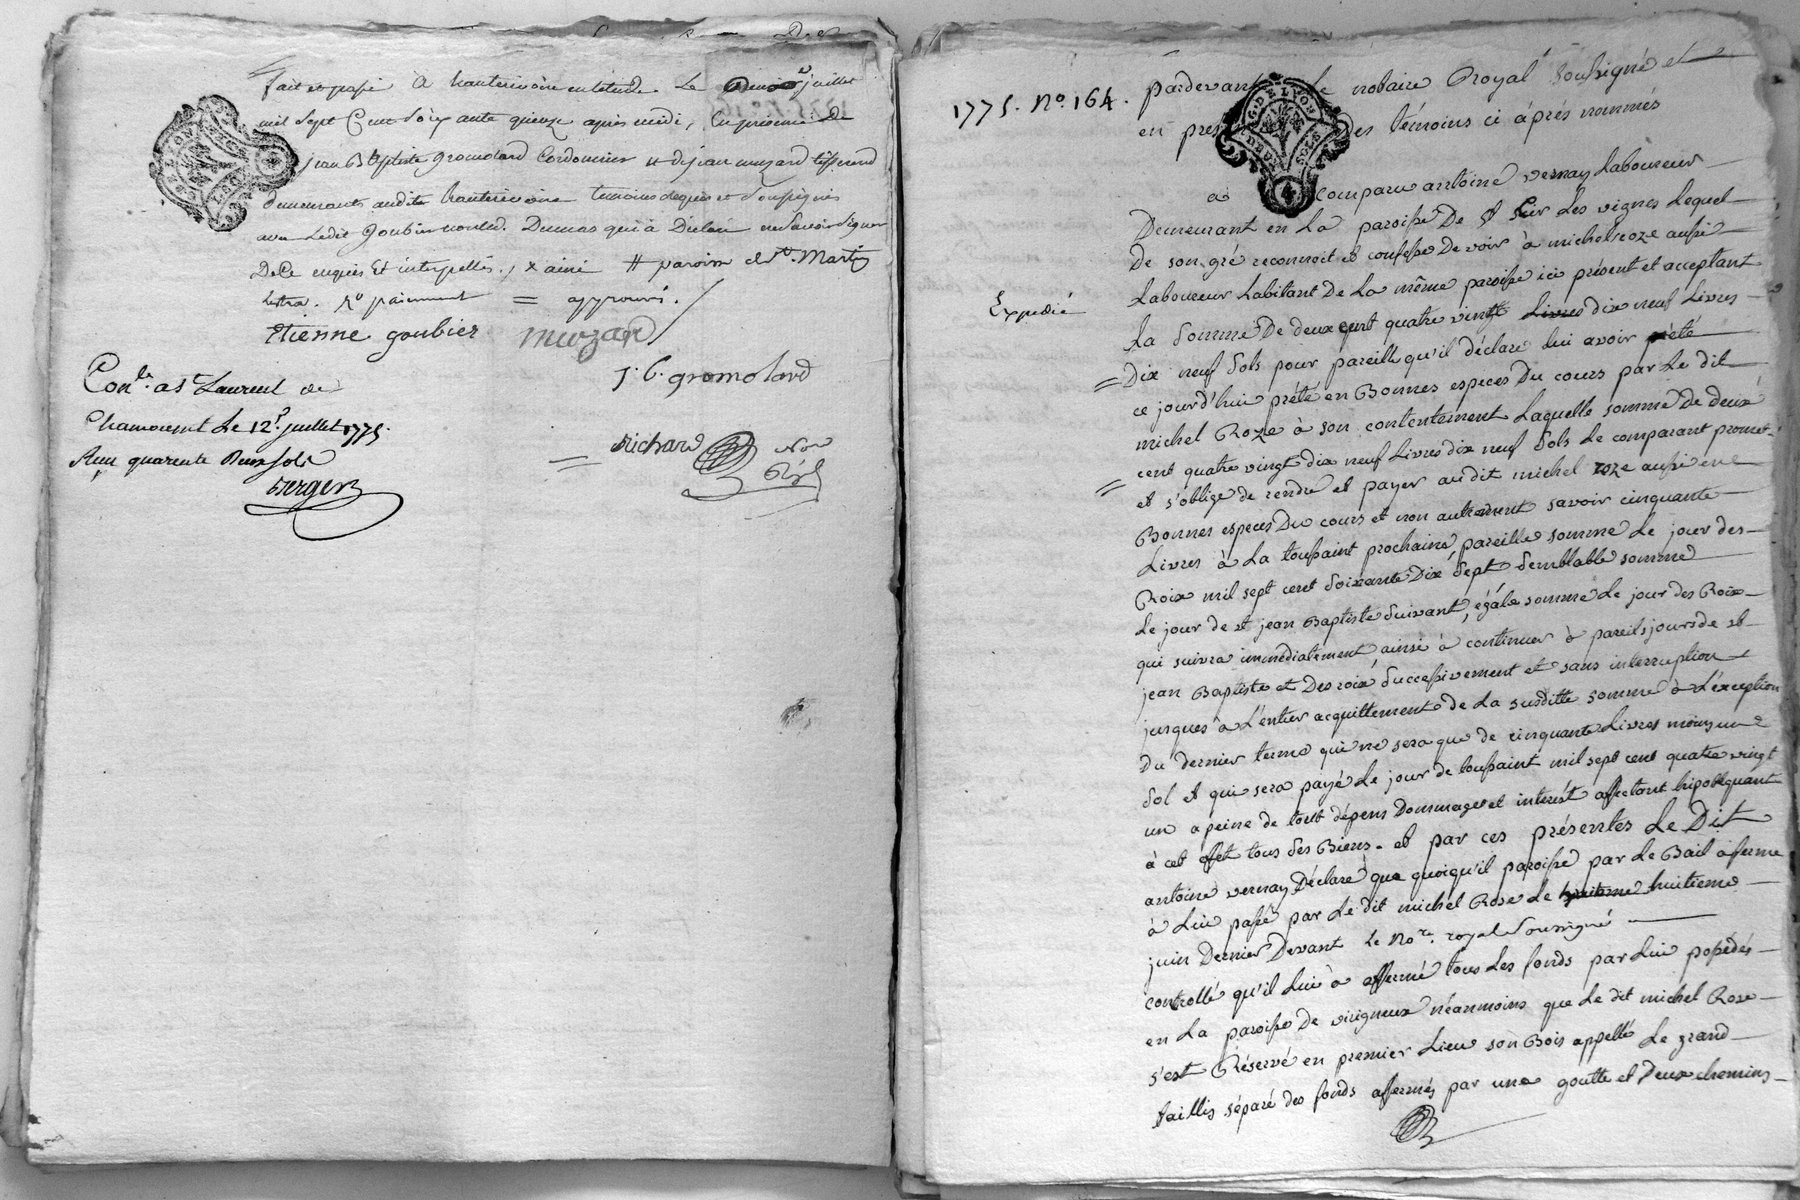 fait et passé à hauterivoire en l'étude. Le douze juillet
mil sept Cent soixante quinze après midi, En présence de
jean Baptiste gromolard Cordonnier # de jean muzard tisserand
demeurants audit hauterivoire temoins requis et soussignés
avec Ledit goubier non led. Dumas qui à Déclaré ne savoir signer
De Ce enquis Et interpellés. x ainé # paroisse de St. Martin
Lestra. paiement = approuvé.
Etienne goubier muzard
J. B. gromolard
Conlé. a St Laurent de
Chamousset Le 12e. juillet 1775.
Reçu quarente Deux sols
Berger
Richard Nore
Royal
1775. No. 164.
Expedié
G. DE LYON
DEUX SOLS
4
pardevant Le notaire Royal soussigné et
en pres des témoins ci áprés nommés
a comparu antoine vernay Laboureur
Demeurant en La paroisse De St Cir Les vignes Lequel
De son gré reconnoit et confesse Devoir à michel roze aussi
Laboureur habitant De La même paroisse ici présent et acceptant
La somme De deux cent quatre vingt Livres dix neuf Livres
= Dix neuf sols pour pareille qu'il déclare lui avoir prêté
ce jourd'hui prété en Bonnes especes Du cours par Le dit
michel Roze à son contentement Laquelle somme De deux
cent quatre vingt dix neuf Livres dix neuf sols Le comparant promet
= et s'oblige de rendre et payer audit michel roze aussi en
Bonnes especes Du cours et non autrement savoir cinquante
Livres à La toussaint prochaine, pareille somme Le jour des
Roix mil sept cent soixante Dix sept semblable somme
Le jour de st jean Baptiste suivant, égale somme Le jour des Roix
qui suivra immédiatement ainsi à continuer à pareils jours de st
jean Baptiste et Des roix successivement et sans interruption
jusques à L'entier acquittement de La susditte somme à L'éxception
Du dernier terme qui ne sera que de cinquante Livres moins un
sol et qui sera payé Le jour de toussaint mil sept cent quatre vingt
un a peine de tous dépens Dommages et interést affectant hipotéquant
à cet effet tous ses Biens. et par ces présentes Le Dit
antoine vernay Déclare que quoiqu'il paroisse par Le Bail à ferme
à Lui passé par Le dit michel Rose Le huitieme huitieme
juin Dernier Devant Le Nore. royal soussigné
controllé qu'il Lui à affermé tous Les fonds par Lui possédés
en La paroisse De virigneux néanmoins que Le dit michel Rose
s'est Réservé en premier Lieu son Bois appellé Le grand
taillis séparé des fonds affermés par une goutte et Deux chemins